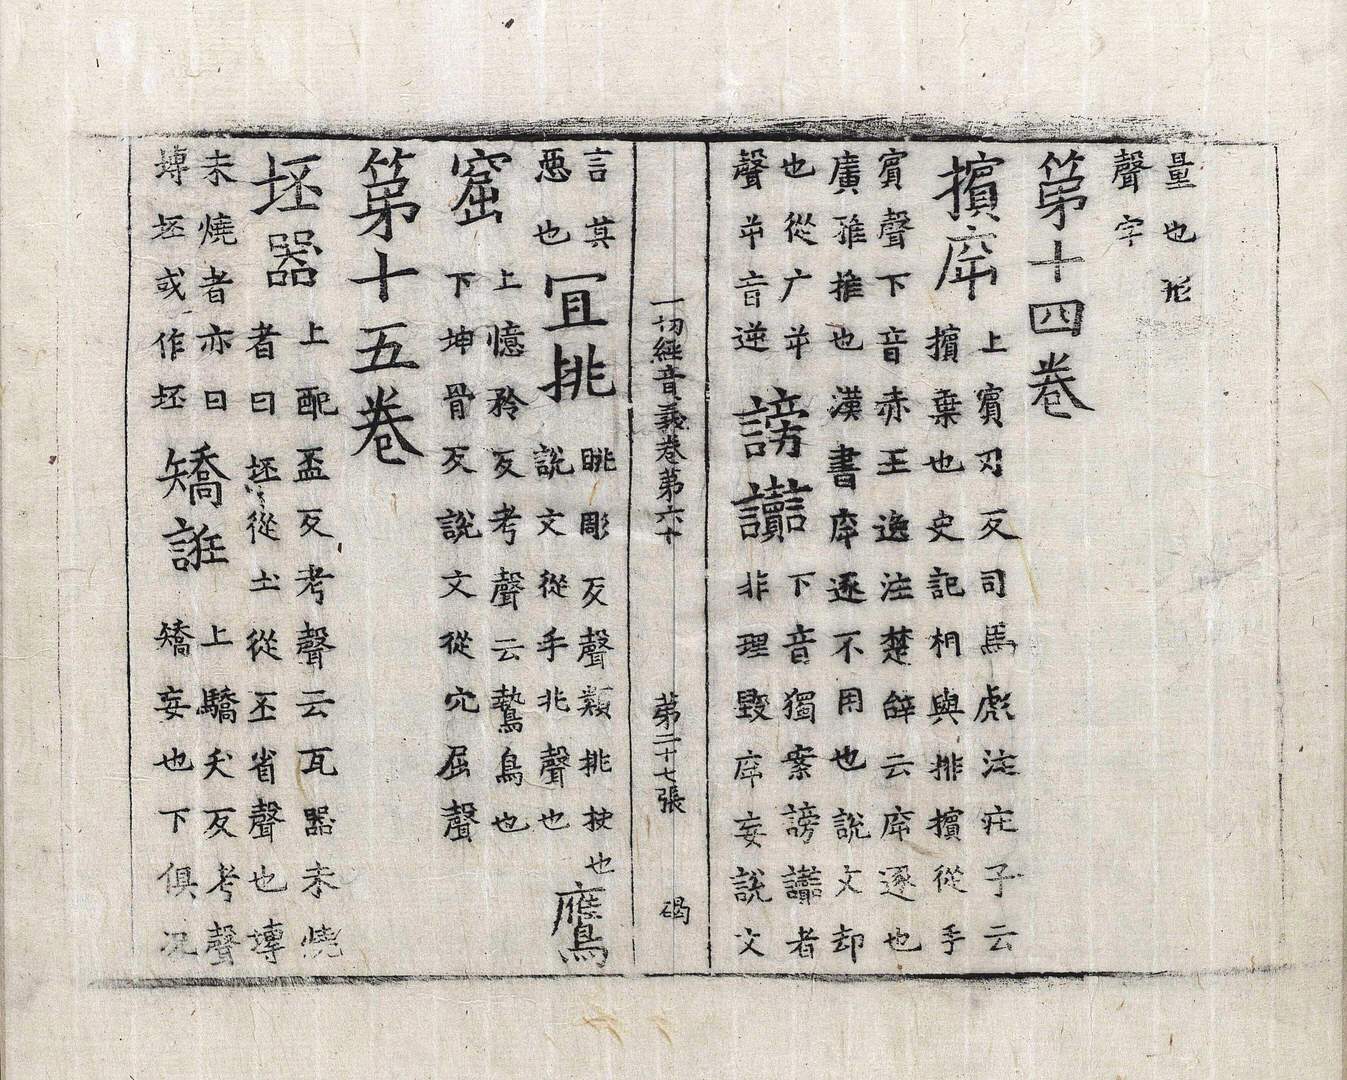 量也形
聲字
第十四卷
擯庌上賓刃反司馬彪注庄子云
擯棄也史記相與排擯從手
賓聲下音赤王逸注楚辞云庌逐也
廣雅推也漢書庌逐不用也說文却
也從广屰謗讟下音獨案謗讟者
聲屰音逆非理毀庌妄說文
一切經音義卷第六十 第二十七張 碣
言其宜挑眺彫反聲類挑抉也鷹
惡也說文從手兆聲也
窟上憶矜反考聲云鷙鳥也
下坤骨反說文從穴屈聲
第十五卷
坯器上配盃反考聲云瓦器未燒
者曰坯從土從丕省聲也塼
未燒者亦曰矯誑上驕夭反考聲
塼坯或作坯矯妄也下俱况